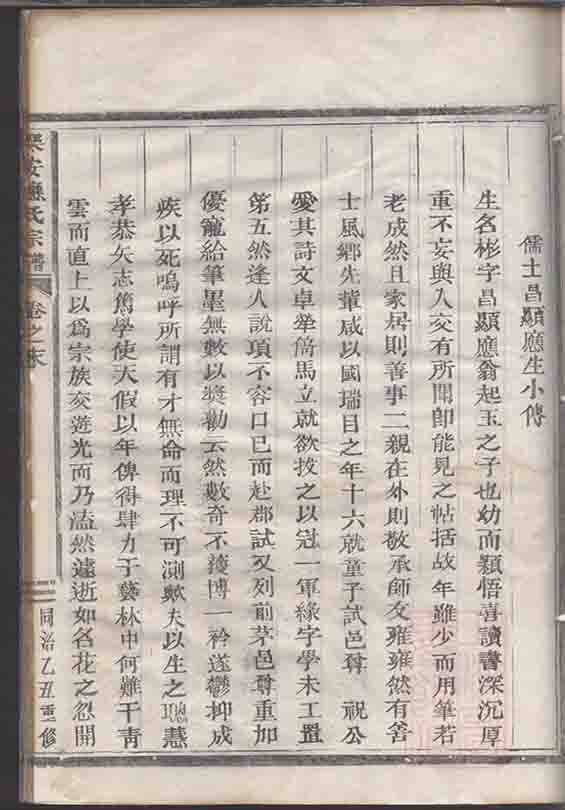 儒士昌顯應生小傳
生名彬字昌顯應翁起玉之子也幼而穎悟喜讀書深沉厚
重不妄與人交有所聞即能見之帖括故年雖少而用筆若
老成然且家居則善事二親在外則敬承師友雍雍然有善
士風鄉先輩咸以國瑞目之年十六就童子試邑尊　祝公
愛其詩文卓犖倚馬立就欲拔之以冠一軍緣字學未工置
第五然逢人說項不容口已而赴郡試又列前茅邑尊重加
優寵給筆墨無數以奬勸云然數奇不獲博一衿遂鬱抑成
疾以死嗚呼所謂有才無命而理不可測歟夫以生之聰慧
孝恭矢志篤學使天假以年俾得肆力于藝林中何難干青
雲而直上以爲宗族交遊光而乃溘然遠逝如名花之忽開
樂安應氏宗譜
卷之末
同治乙丑重修